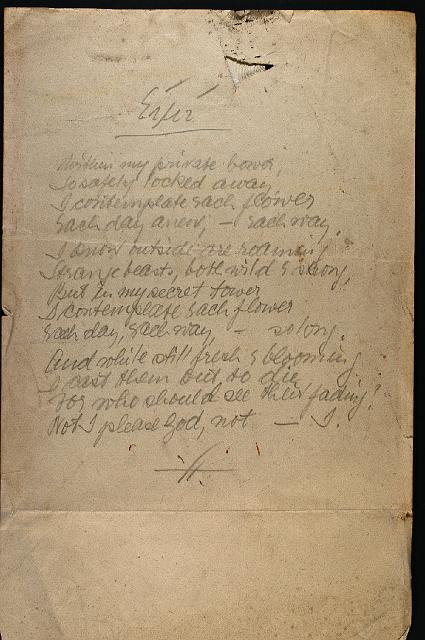 Within my private bower,
So safely locked away,
I contemplate each flower
Each day anew, — each way.
I know outside are roaming
Strange beasts, both wild & strong,
But in my secret tower
I contemplate each flower
Each day, each way, — so long.
And while still fresh & blooming
I cast them out, to die
For who should see their fading?
Not I please God, not — I.